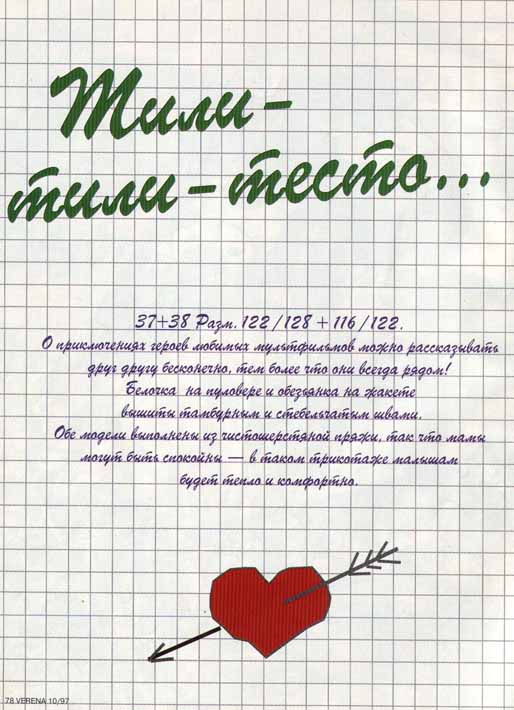 Тили-
тили-тесто...
37+38 Разм. 122/128 + 116/122.
О приключениях героев любимых мультфильмов можно рассказывать
друг другу бесконечно, тем более что они всегда рядом!
Белочка на пуловере и обезьянка на жакете
вышиты тамбурным и стебельчатым швами.
Обе модели выполнены из чистошерстяной пряжи, так что мамы
могут быть спокойны — в таком трикотаже малышам
будет тепло и комфортно.
78 VERENA 10/97